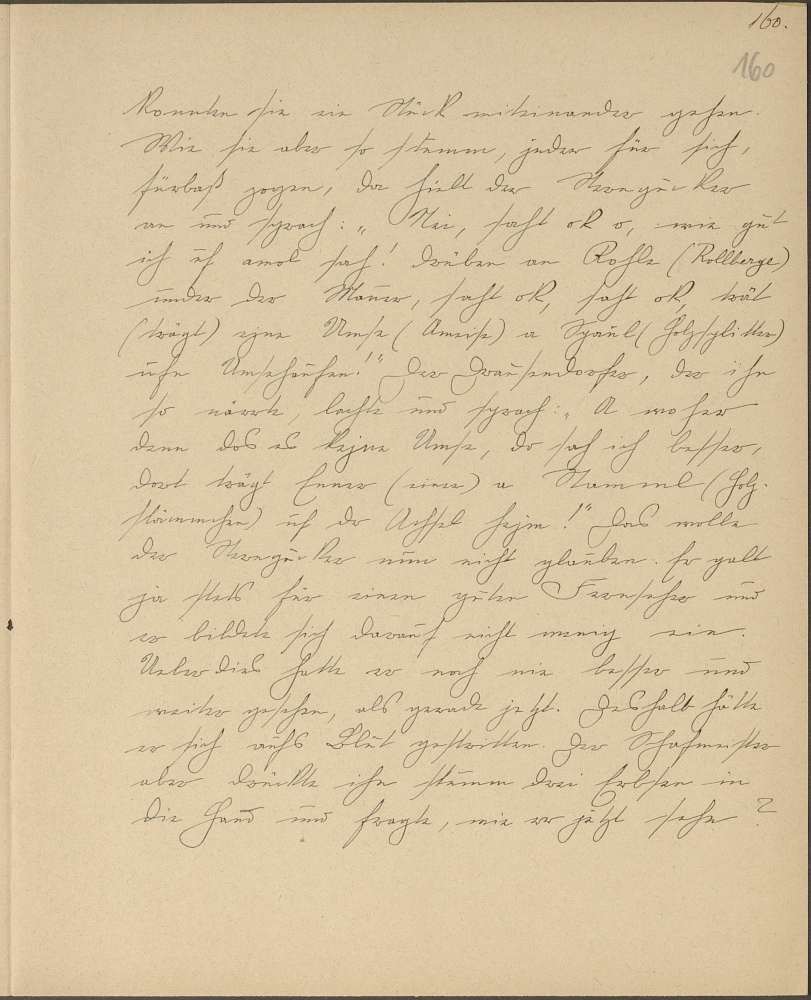 160.
160
konnten sie ein Stück miteinander gehen.
Wie sie aber so stumm, jeder für sich,
fürbaß zogen, da hielt der Sterngucker
an und sprach: „Nei, saht ok o, wie gut
ich uf amol sah! Drüben an Rohle (Rollberge)
under der Mauer, saht ok, saht ok, trät
(trägt) ejne Umse (Ameise) a Spaul (Holzsplitter)
ufn Umsehaufen!" Der Drausendorfer, der ihn
so närrte, lachte und sprach: „A woher
denn das es kejne Umse, do sah ich besser,
dort trägt Enner (einer) a Stamml (Holz-
stämmchen) uf dr Achsel hejm!" Das wollte
der Sterngucker nun nicht glauben. Er galt
ja stets für einen guten Fernseher und
er bildete sich darauf nicht wenig ein.
Ueberdies hatte er noch nie besser und
weiter gesehen, als gerade jetzt. Deshalb hätte
er sich aufs Blut gestritten. Der Schafmeister
aber drückte ihm stumm drei Erbsen in
die Hand und fragte, wie er jetzt sehe?